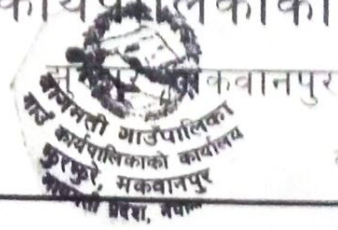 कार्यपालिकाको
मकवानपुर
बागमती गाउँपालिका
गाउँ कार्यपालिकाको कार्यालय
फुरफुरे, मकवानपुर
बागमती प्रदेश, नेपाल